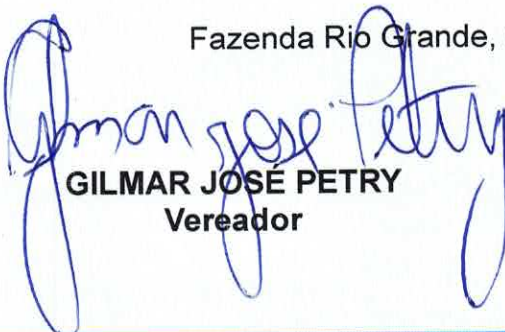 Fazenda Rio Grande,
Gilmar José Petry
GILMAR JOSÉ PETRY
Vereador